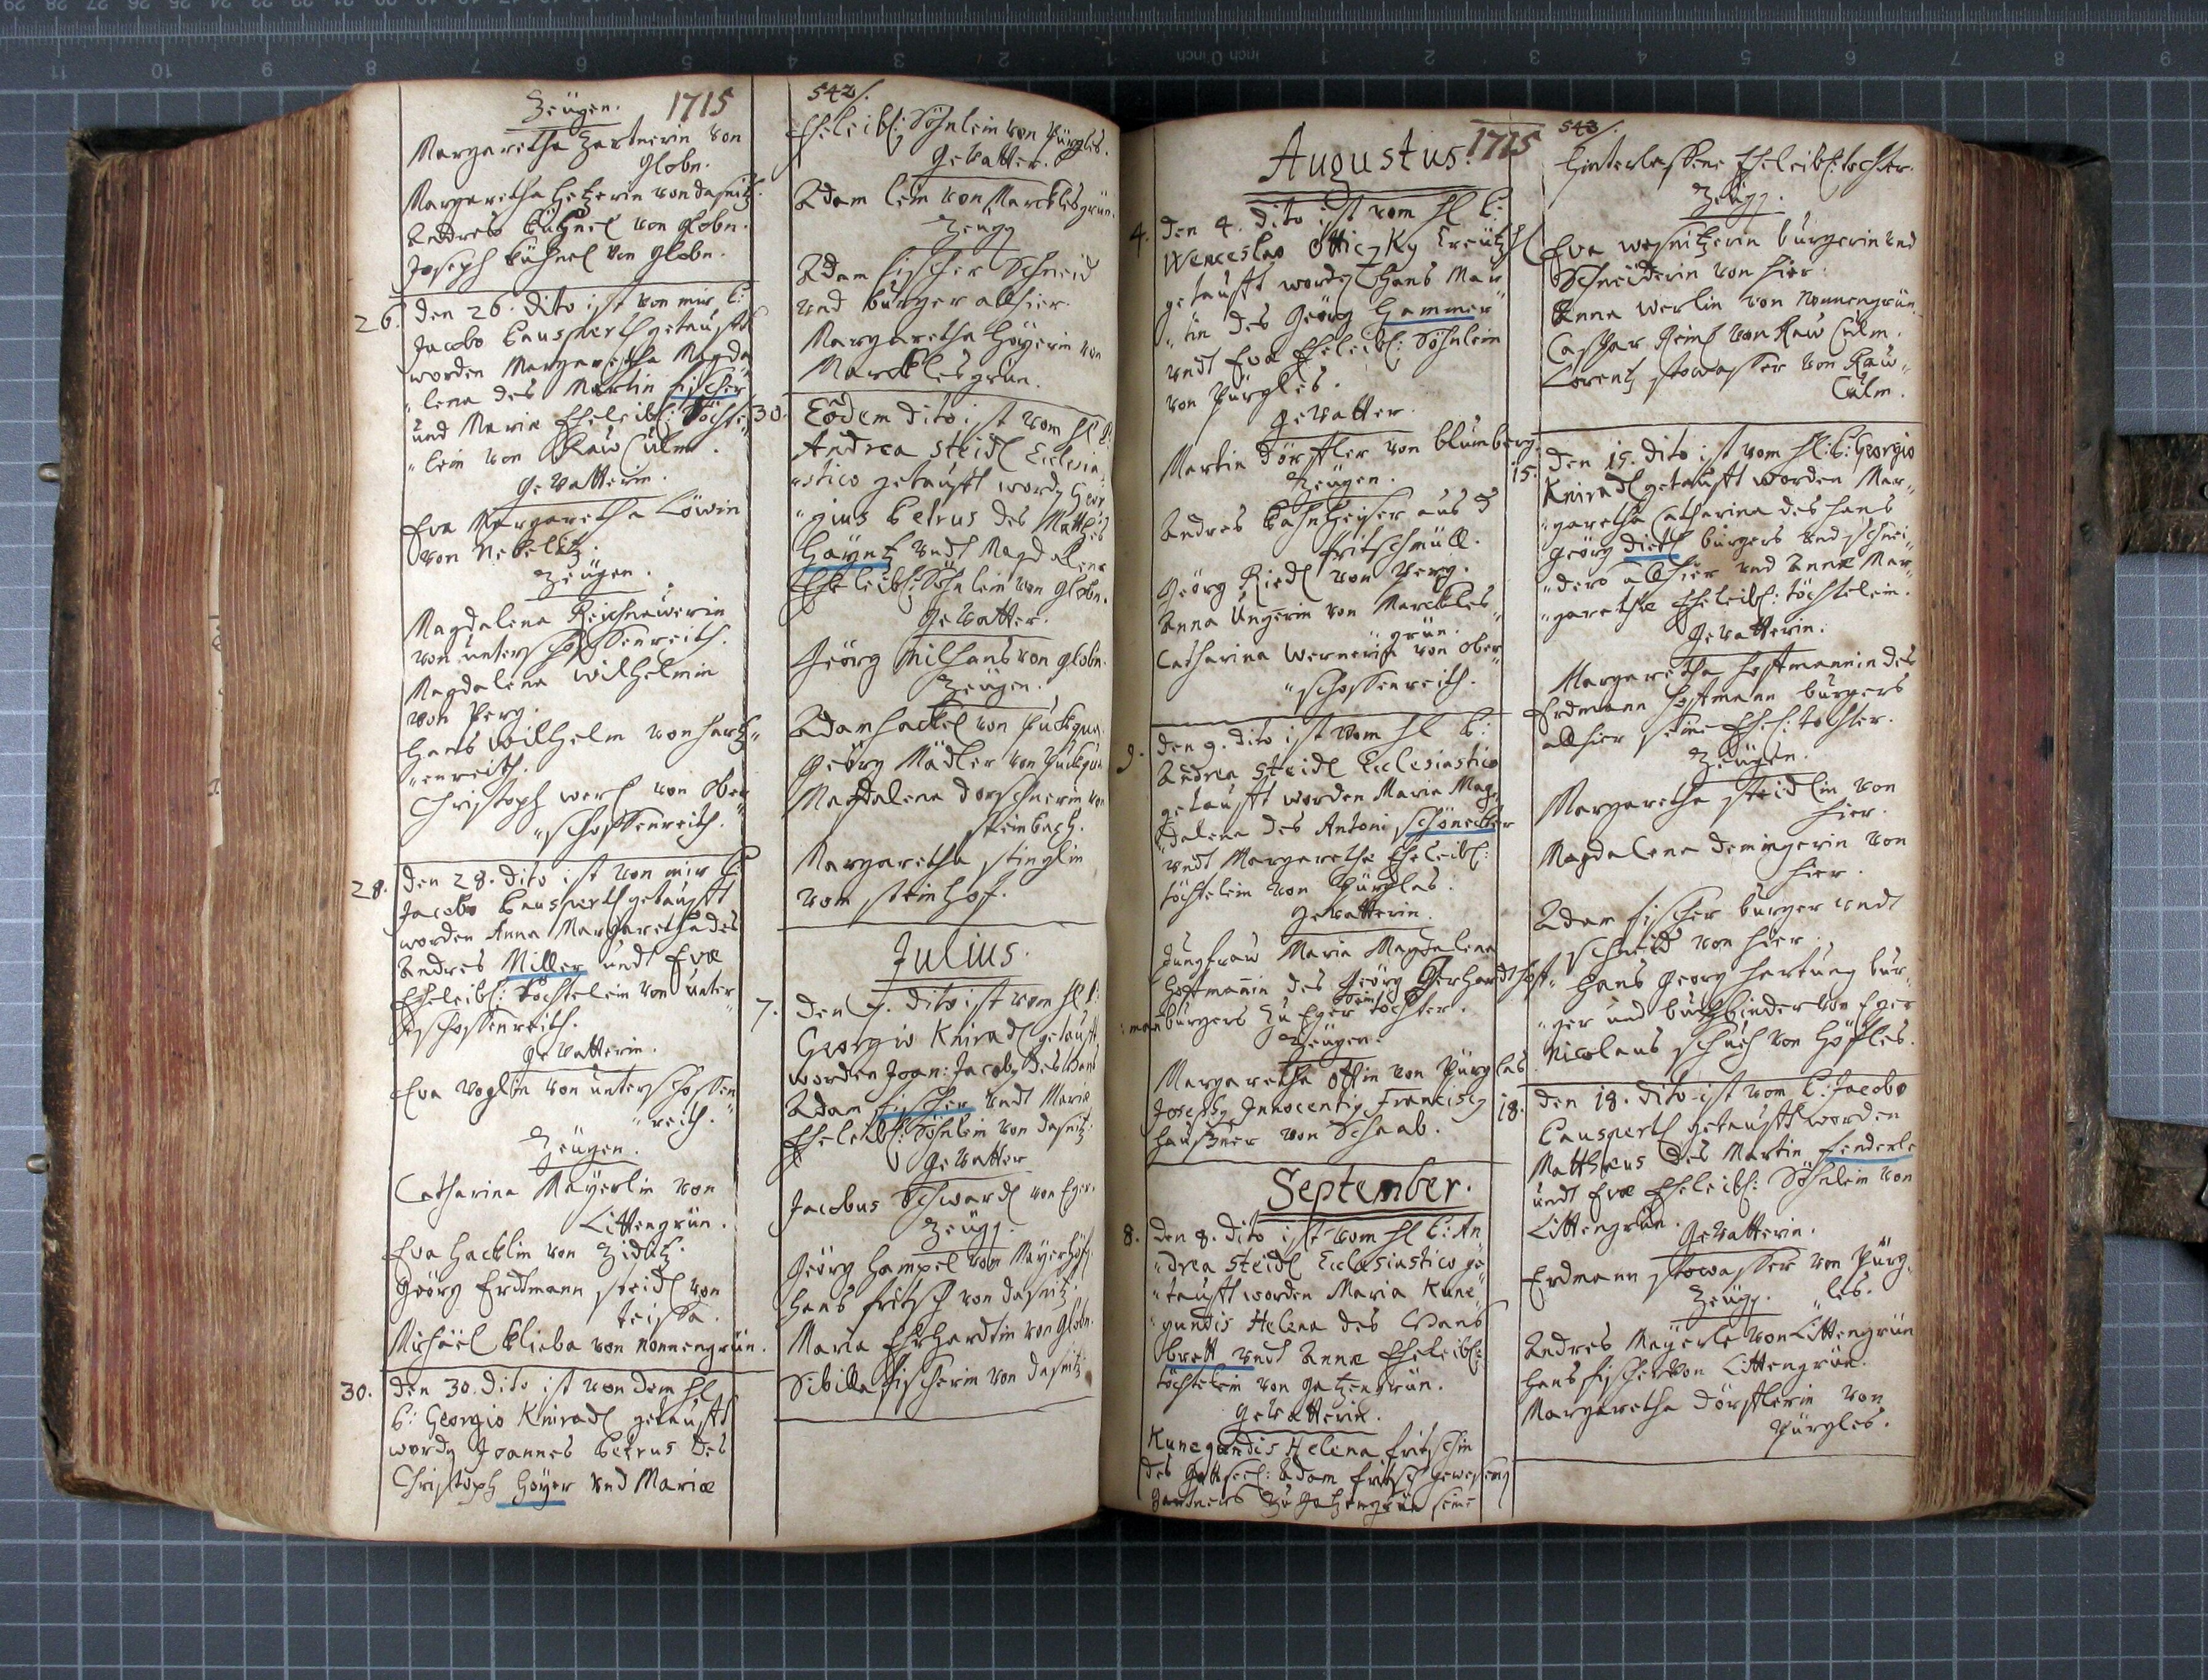 1715
Zeügen.
Margaretha Zartnerin von
Globn.
Margaretha Hetzerin von Dasnitz.
Andres Kühnel von Globn.
Joseph Kühnel von Globn.
26. den 26. dito ist von mir P:
Jacobo Pauspertl getaufft
worden Margaretha Magda„
„lena des Martin Fischer
und Maria Eheleibl: Töchte„
„lein von Raw Culm.
Gevatterin.
Eva Margaretha Löwin
von Nebelitz.
Zeügen.
Magdalena Reichnawerin
von unterschossenreith.
Magdalena Wilhelmin
von Perg.
Hans Wilhelm von Hartz„
„enreith.
Christoph Werl von Ober„
„schossenreith.
28. den 28. dito ist von mir P:
Jacobo Pauspertl getaufft
worden Anna Margaretha des
Andres Miller undt Evæ
Eheleibl: töchtelein von unter„
schossenreith.
Gevatterin.
Eva Voglin von unterschossen„
„reith.
Zeügen.
Catharina Mayerlin von
Littengrün.
Eva Hacklin von Ziditz.
Geörg Erdtmann Steidl von
teissa.
Michäel Klieba von Nonnengrün.
30. den 30. dito ist von dem Hl
P: Georgio Kniradl getaufft
wordn Joannes Petrus des
Christoph Hoyer und Mariæ
542/.
Eheleibl: Söhnlein von Pürgles.
Gevatter.
Adam Lein von Marcklesgrün.
Zeügg
Adam Fischer Schneid
und burger allhier.
Margaretha Hoyerin von
Marcklesgrün.
30. Eodem dito ist vom Hl P:
Andrea Steidl Ecclesia„
„stico getaufft wordn Geor„
„gius Petrus des Matthes
Häyntz undt Magdalena
Eheleibl: Söhnlein von Globn.
Gevatter.
Geörg Milhans von Globn.
Zeügen.
Adam Hackel von Puckgun.
Geörg Mädler von Puckgun
Magdalena Dorschnerin von
Steinbach.
Margaretha Stinglin
vom Steinhof.
Julius.
7. den 7. dito ist vom Hl P:
Georgio Kniradl getaufft
worden Joan: Jacobg des Hans
Adam Fischer undt Maria
Eheleibl: Söhnlein von Dasnitz.
Gevatter
Jacobus Schwardl von Eger.
Zeügg.
Geörg Hampel von Mayerhöf.
Hans Fritsch von Dasnitz.
Maria Ehrhardtin von Globn.
Sibilla Fischerin von Dasnitz.
1715
Augustus.
4. den 4. dito ist vom Hl P:
Wenceslao Otticzky Creützhl
getaufft wordn Hans Mar„
„tin des Geörg Hammer
undt Eva Eheleibl: Söhnlein
von Pürgles.
Gevatter.
Martin Dörffler von Blumberg.
Zeügen.
Andres Bahnheiser aus d
Fritschmüll.
Geörg Riedl von Perg.
Anna Ungerin von Marckles„
„grün.
Catharina Wernerin von Ober„
„schossenreith.
9. den 9. dito ist vom Hl P:
Andrea Steidl Ecclesiastico
getaufft worden Maria Mag„
„dalena des Antoni Schönecker
undt Margaretha Eheleibl:
töchtelein von Pürglas.
Gevatterin.
Jungfraw Maria Magdalena
Hoffmanin des Geörg Gerhardt Hoff„
„man burgers zu Eger sein tochter.
Zeügen.
Margaretha Ottin von Pürglas
Josephg Innocentig Franciscg
Hauszner von Schaab.
September.
8. den 8. dito ist vom Hl P: An„
„drea Steidl Ecclesiastico ge„
„taufft worden Maria Kune„
„gundis Helena des Hans
Brett undt Anna Eheleibl:
töchtelein von Gatzengrün.
Gevatterin.
Kunegundis Helena Fritschin
des Gottseel: Adam Fritsch gewesenen
Gartners zu Gatzengrün seine
543/.
hinterlassene Eheleibl: tochter.
Zeügg.
Eva Wesnitzerin burgerin und
Schneiderin von hier.
Anna Werlin von Nonnengrün.
Caspar Reinl von Raw Culm.
Lorentz Stowasser von Raw„
Culm.
15. den 15. dito ist vom Hl: P: Georgio
Kniradl getaufft worden Mar„
„garetha Catharina des Hans
Geörg Dietl burgers und Schnei„
„ders allhier und Anna Mar„
„garetha Eheleibl: töchtelein.
Gevatterin.
Margaretha Hoffmannin des
Erdmann Hoffmann burgers
allhier seine Ehel: tochter.
Zeügen.
Margaretha Steidlin von
hier.
Magdalena Demingerin von
hier.
Adam Fischer burger undt
Schneid von hier.
Hans Georg Hartung bur„
„ger und buchbinder von Eger
Nicolaus Schuch von Höfles.
18. den 18. dito ist vom P: Jacobo
Pauspertl getaufft worden
Matthæus des Martin Fenderle
undt Evæ Eheleibl: Söhnlein von
Littengrün.
Gevatterin.
Erdmann Stowasser von Pürg„
„les.
Zeügg.
Andres Mayerle von Littengrün
Hans Fischer von Littengrün.
Margaretha Dörfflerin von
Pürgles.